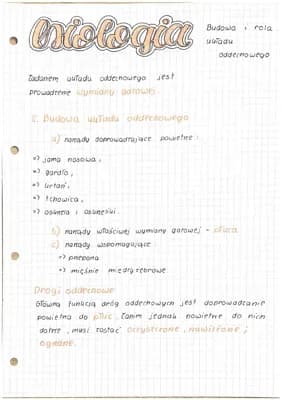 Biologia
Budowa i rola
układu
oddechowego
Zadaniem układu oddechowego jest
prowadzenie wymiany gazowej.
I. Budowa układu oddechowego
a) narządy doprowadzające powietrze:
=> jama nosowa,
=> gardło,
=> krtań,
=> tchawica,
=> oskrzela i oskrzeliki.
b) narządy właściwej wymiany gazowej - płuca
c) narządy wspomagające
=> przepona
=> mięśnie międzyżebrowe
Drogi oddechowe
Główną funkcją dróg oddechowych jest doprowadzanie
powietrza do płuc. Zanim jednak powietrze do nich
dotrze, musi zostać oczyszczone, nawilżone i
ogrzane.